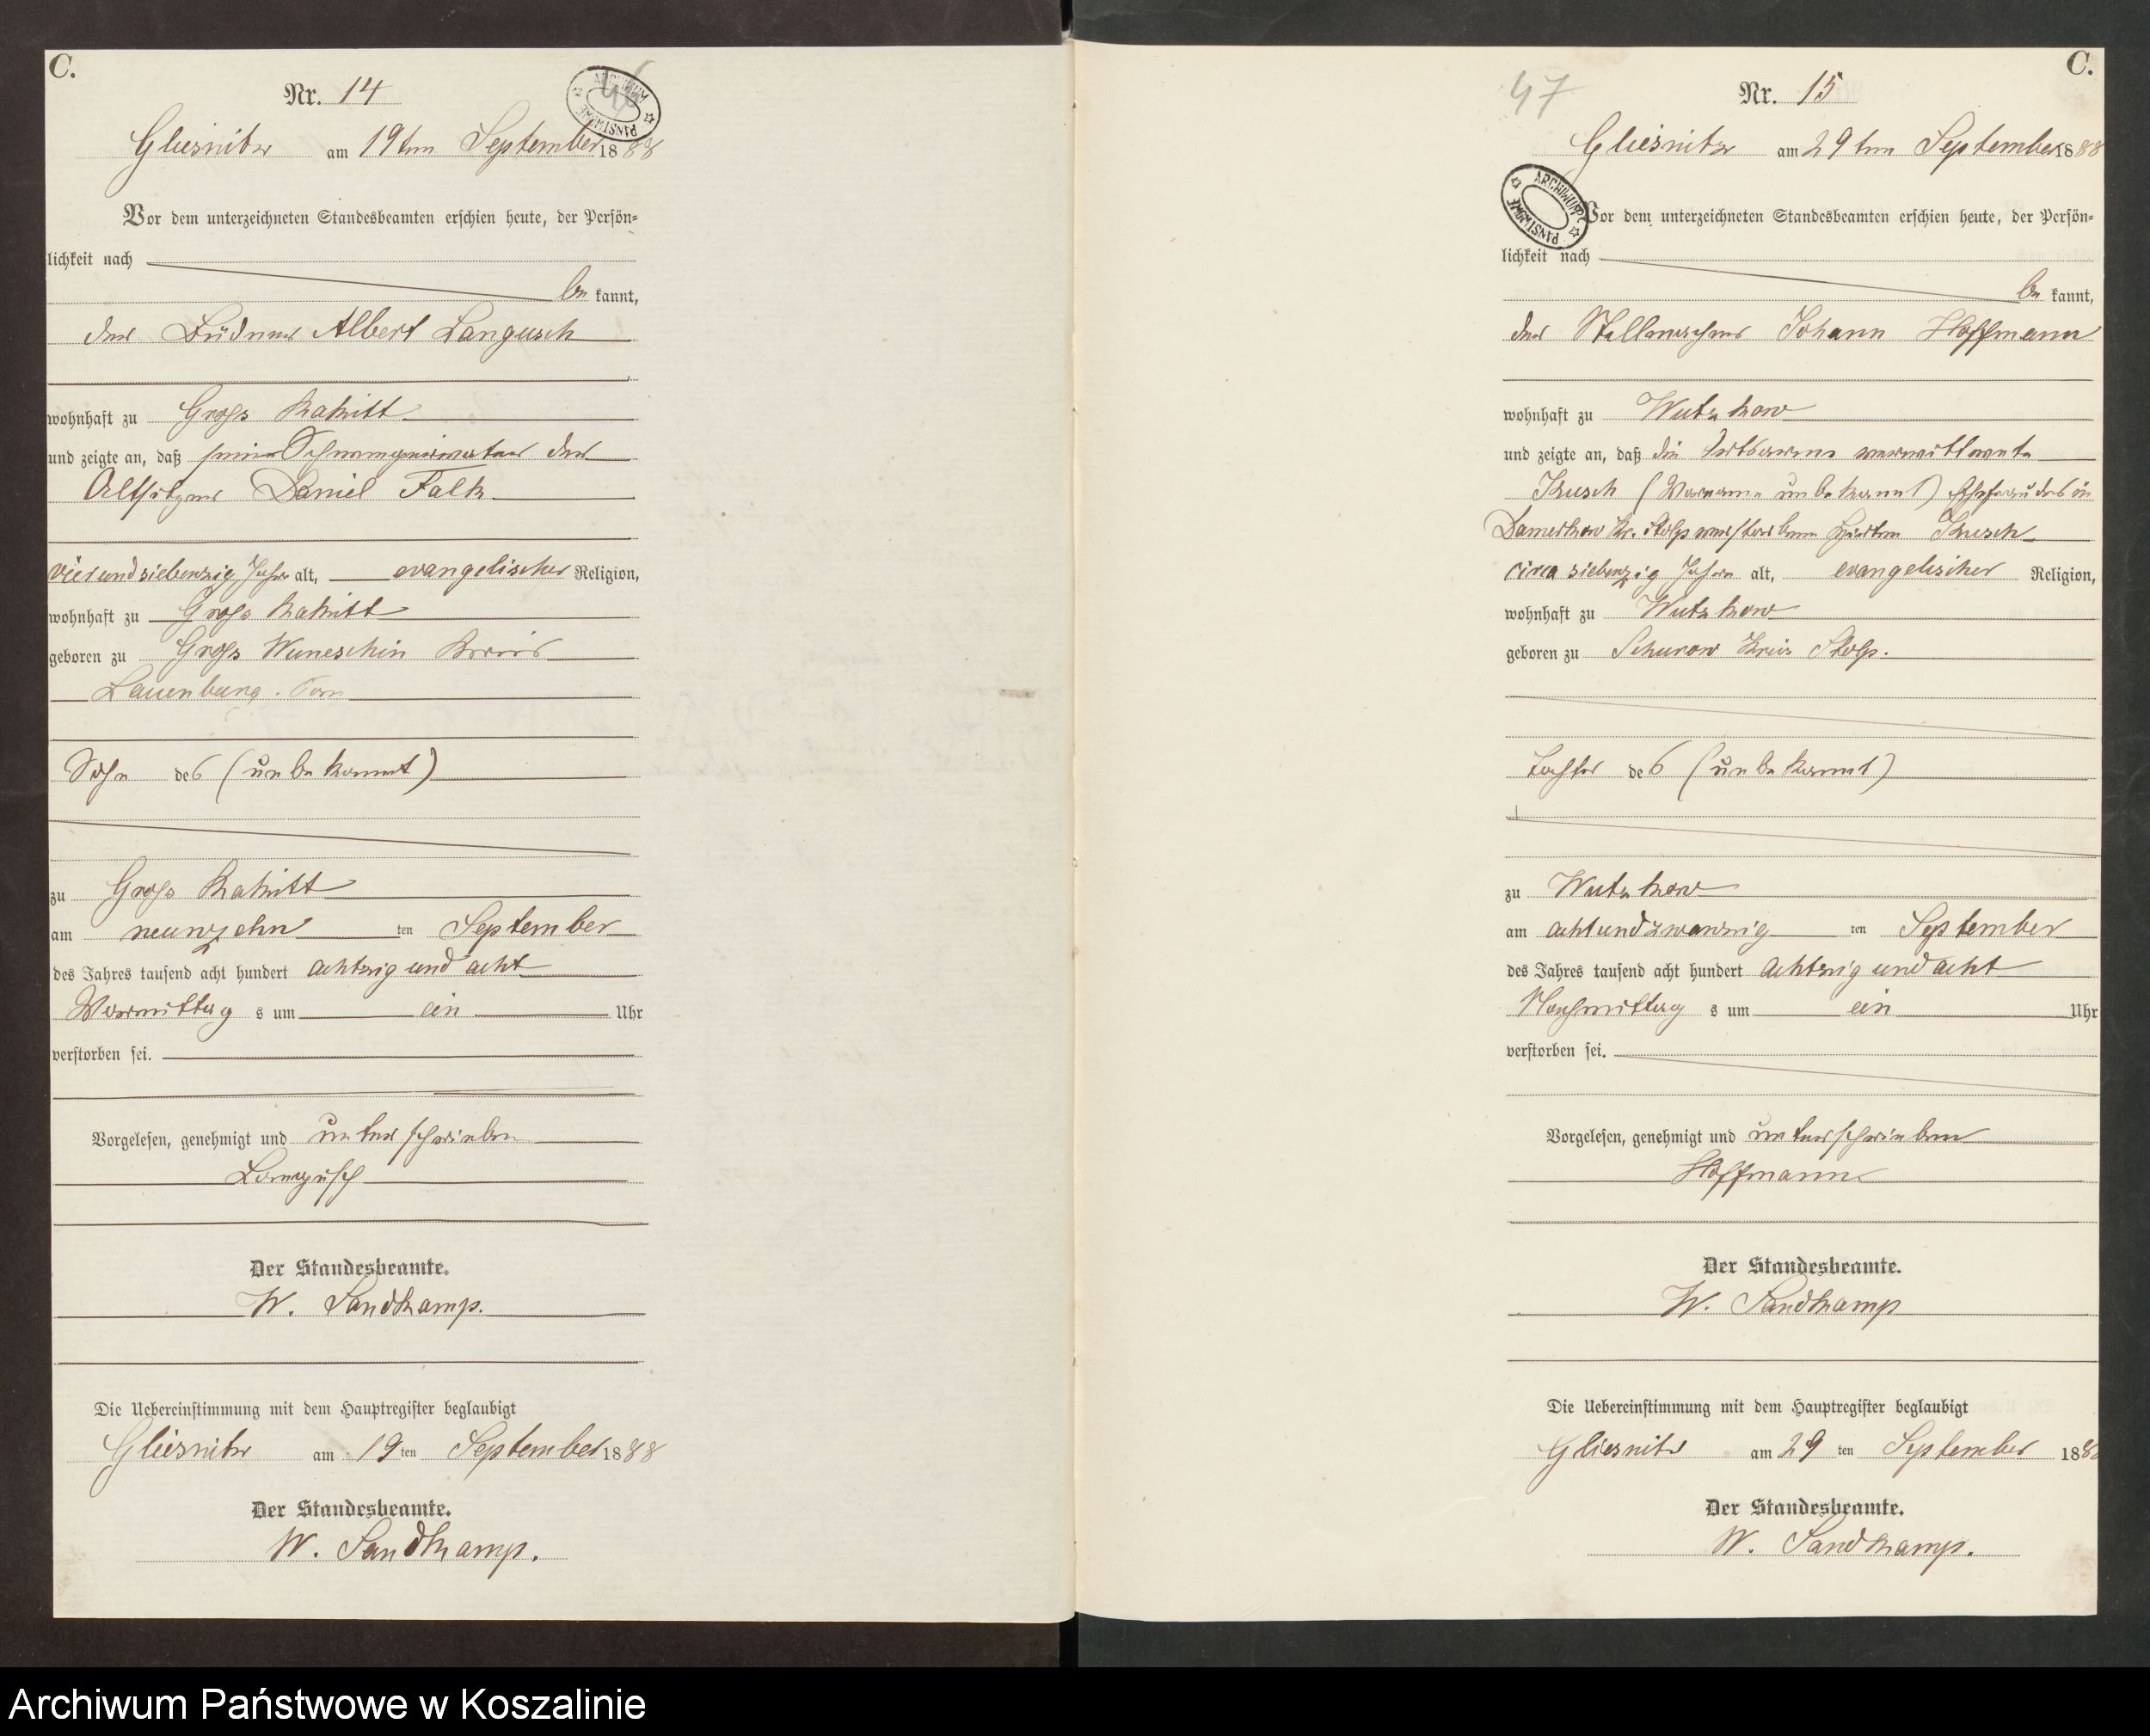 C.
Nr. 14
46
ARCHIWUM PAŃSTWOWE
Gliesnitz am 19ten September 1888
Vor dem unterzeichneten Standesbeamten erschien heute, der Persön-
lichkeit nach
be kannt,
der Büdner Albert Langusch
wohnhaft zu Gross Rakitt
und zeigte an, daß sein Schwiegervater der
Altsitzer Daniel Falk
vierundsiebenzig Jahre alt, evangelischer Religion,
wohnhaft zu Gross Rakitt
geboren zu Gross Wuneschin Kreis
Lauenburg. Pom
Sohn des (unbekannt)
zu Gross Rakitt
am neunzehn ten September
des Jahres tausend acht hundert achtzig und acht
Vormittag s um ein Uhr
verstorben sei.
Vorgelesen, genehmigt und unterschrieben
Langusch
Der Standesbeamte.
W. Sandkamp.
Die Uebereinstimmung mit dem Hauptregister beglaubigt
Gliesnitz am 19 ten September 1888
Der Standesbeamte.
W. Sandkamp.
C.
47
Nr. 15
Gliesnitz am 29ten September 1888
ARCHIWUM PAŃSTWOWE
Vor dem unterzeichneten Standesbeamten erschien heute, der Persön-
lichkeit nach
be kannt,
der Stellmacher Johann Hoffmann
wohnhaft zu Wutzkow
und zeigte an, daß die Ortsarme verwittwete
Kusch (Vorname unbekannt) Ehefrau des in
Damerkow Kr. Stolp verstorbenen Hirten Kusch
circa siebenzig Jahre alt, evangelischer Religion,
wohnhaft zu Wutzkow
geboren zu Schurow Kreis Stolp.
Tochter des (unbekannt)
zu Wutzkow
am achtundzwanzig ten September
des Jahres tausend acht hundert achtzig und acht
Nachmittag s um ein Uhr
verstorben sei.
Vorgelesen, genehmigt und unterschrieben
Hoffmann
Der Standesbeamte.
W. Sandkamp
Die Uebereinstimmung mit dem Hauptregister beglaubigt
Gliesnitz am 29 ten September 1888
Der Standesbeamte.
W. Sandkamp.
Archiwum Państwowe w Koszalinie